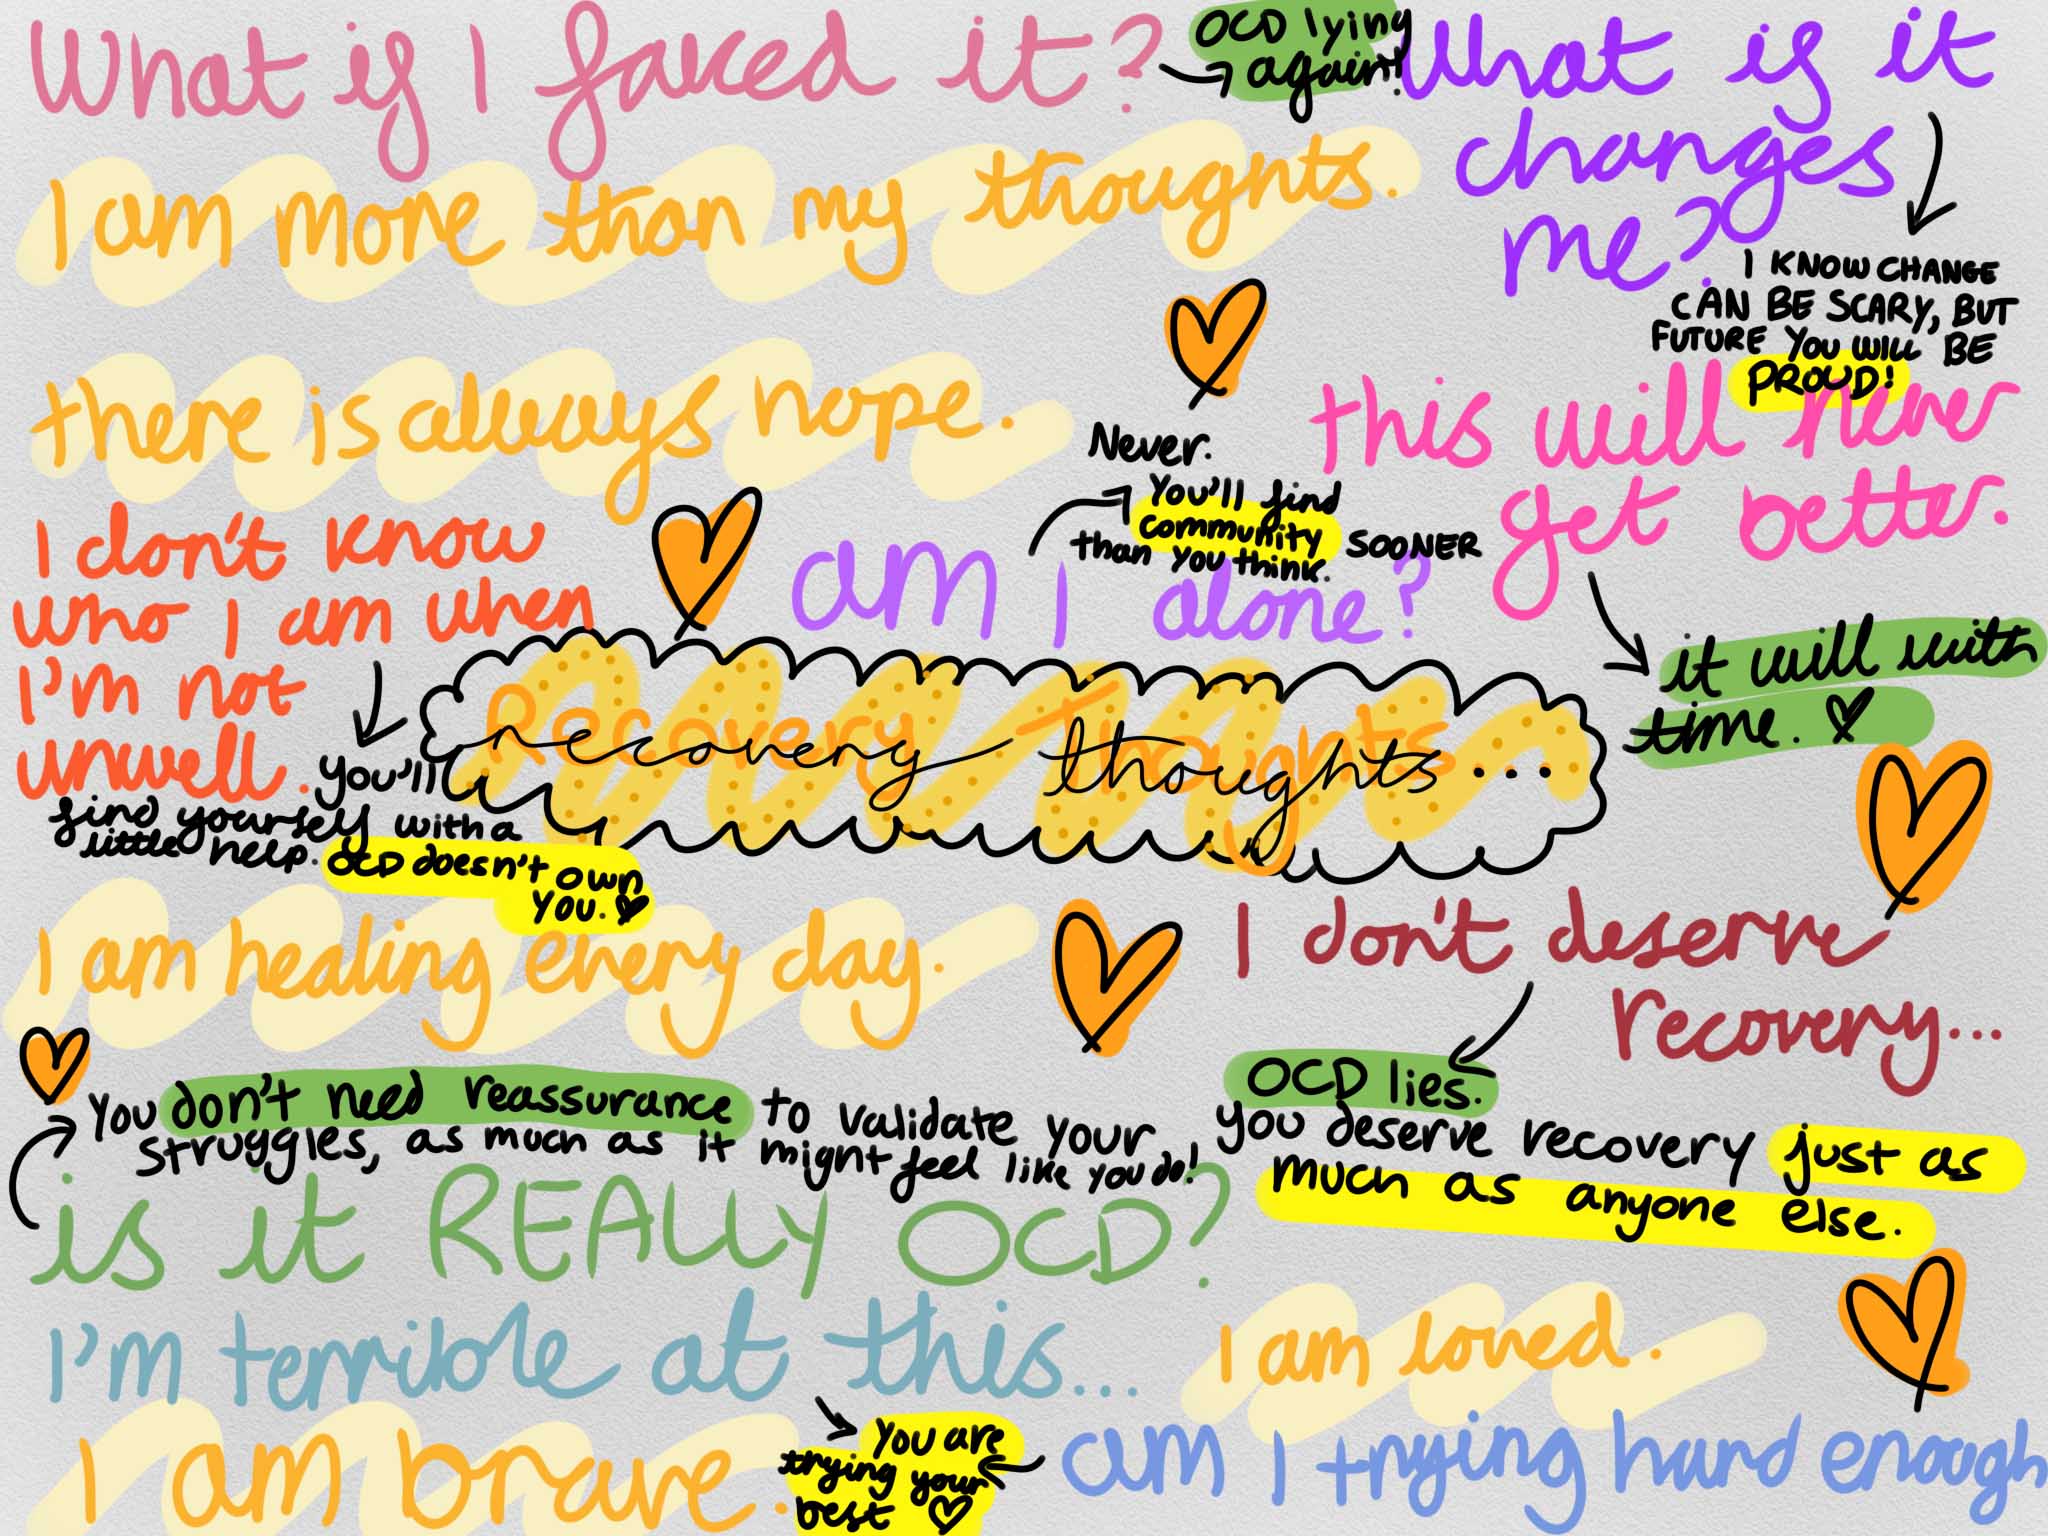 What if I faked it?
OCD lying
again!
What if it
changes
me?
I KNOW CHANGE
CAN BE SCARY, BUT
FUTURE YOU WILL BE
PROUD!
I am more than my thoughts.
there is always hope.
Never.
You'll find
community SOONER
than you think.
am I alone?
this will never
get better.
it will with
time.
I don't know
who I am when
I'm not
unwell.
you'll
find yourself with a
little help. OCD doesn't own
you.
Recovery Thoughts
recovery thoughts...
I am healing every day.
I don't deserve
recovery...
OCD lies.
you deserve recovery just as
much as anyone else.
You don't need reassurance to validate your
struggles, as much as it might feel like you do!
is it REALLY OCD?
I'm terrible at this...
I am loved.
I am brave.
You are
trying your
best
am I trying hard enough